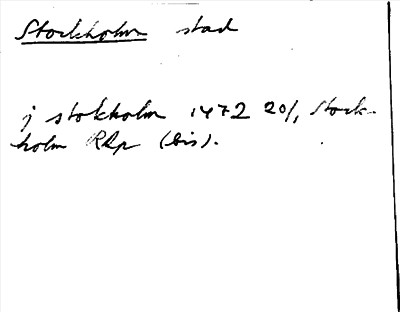 Stockholm stad
j stokholm 1472 20/, Stock-
holm RAp (bis).